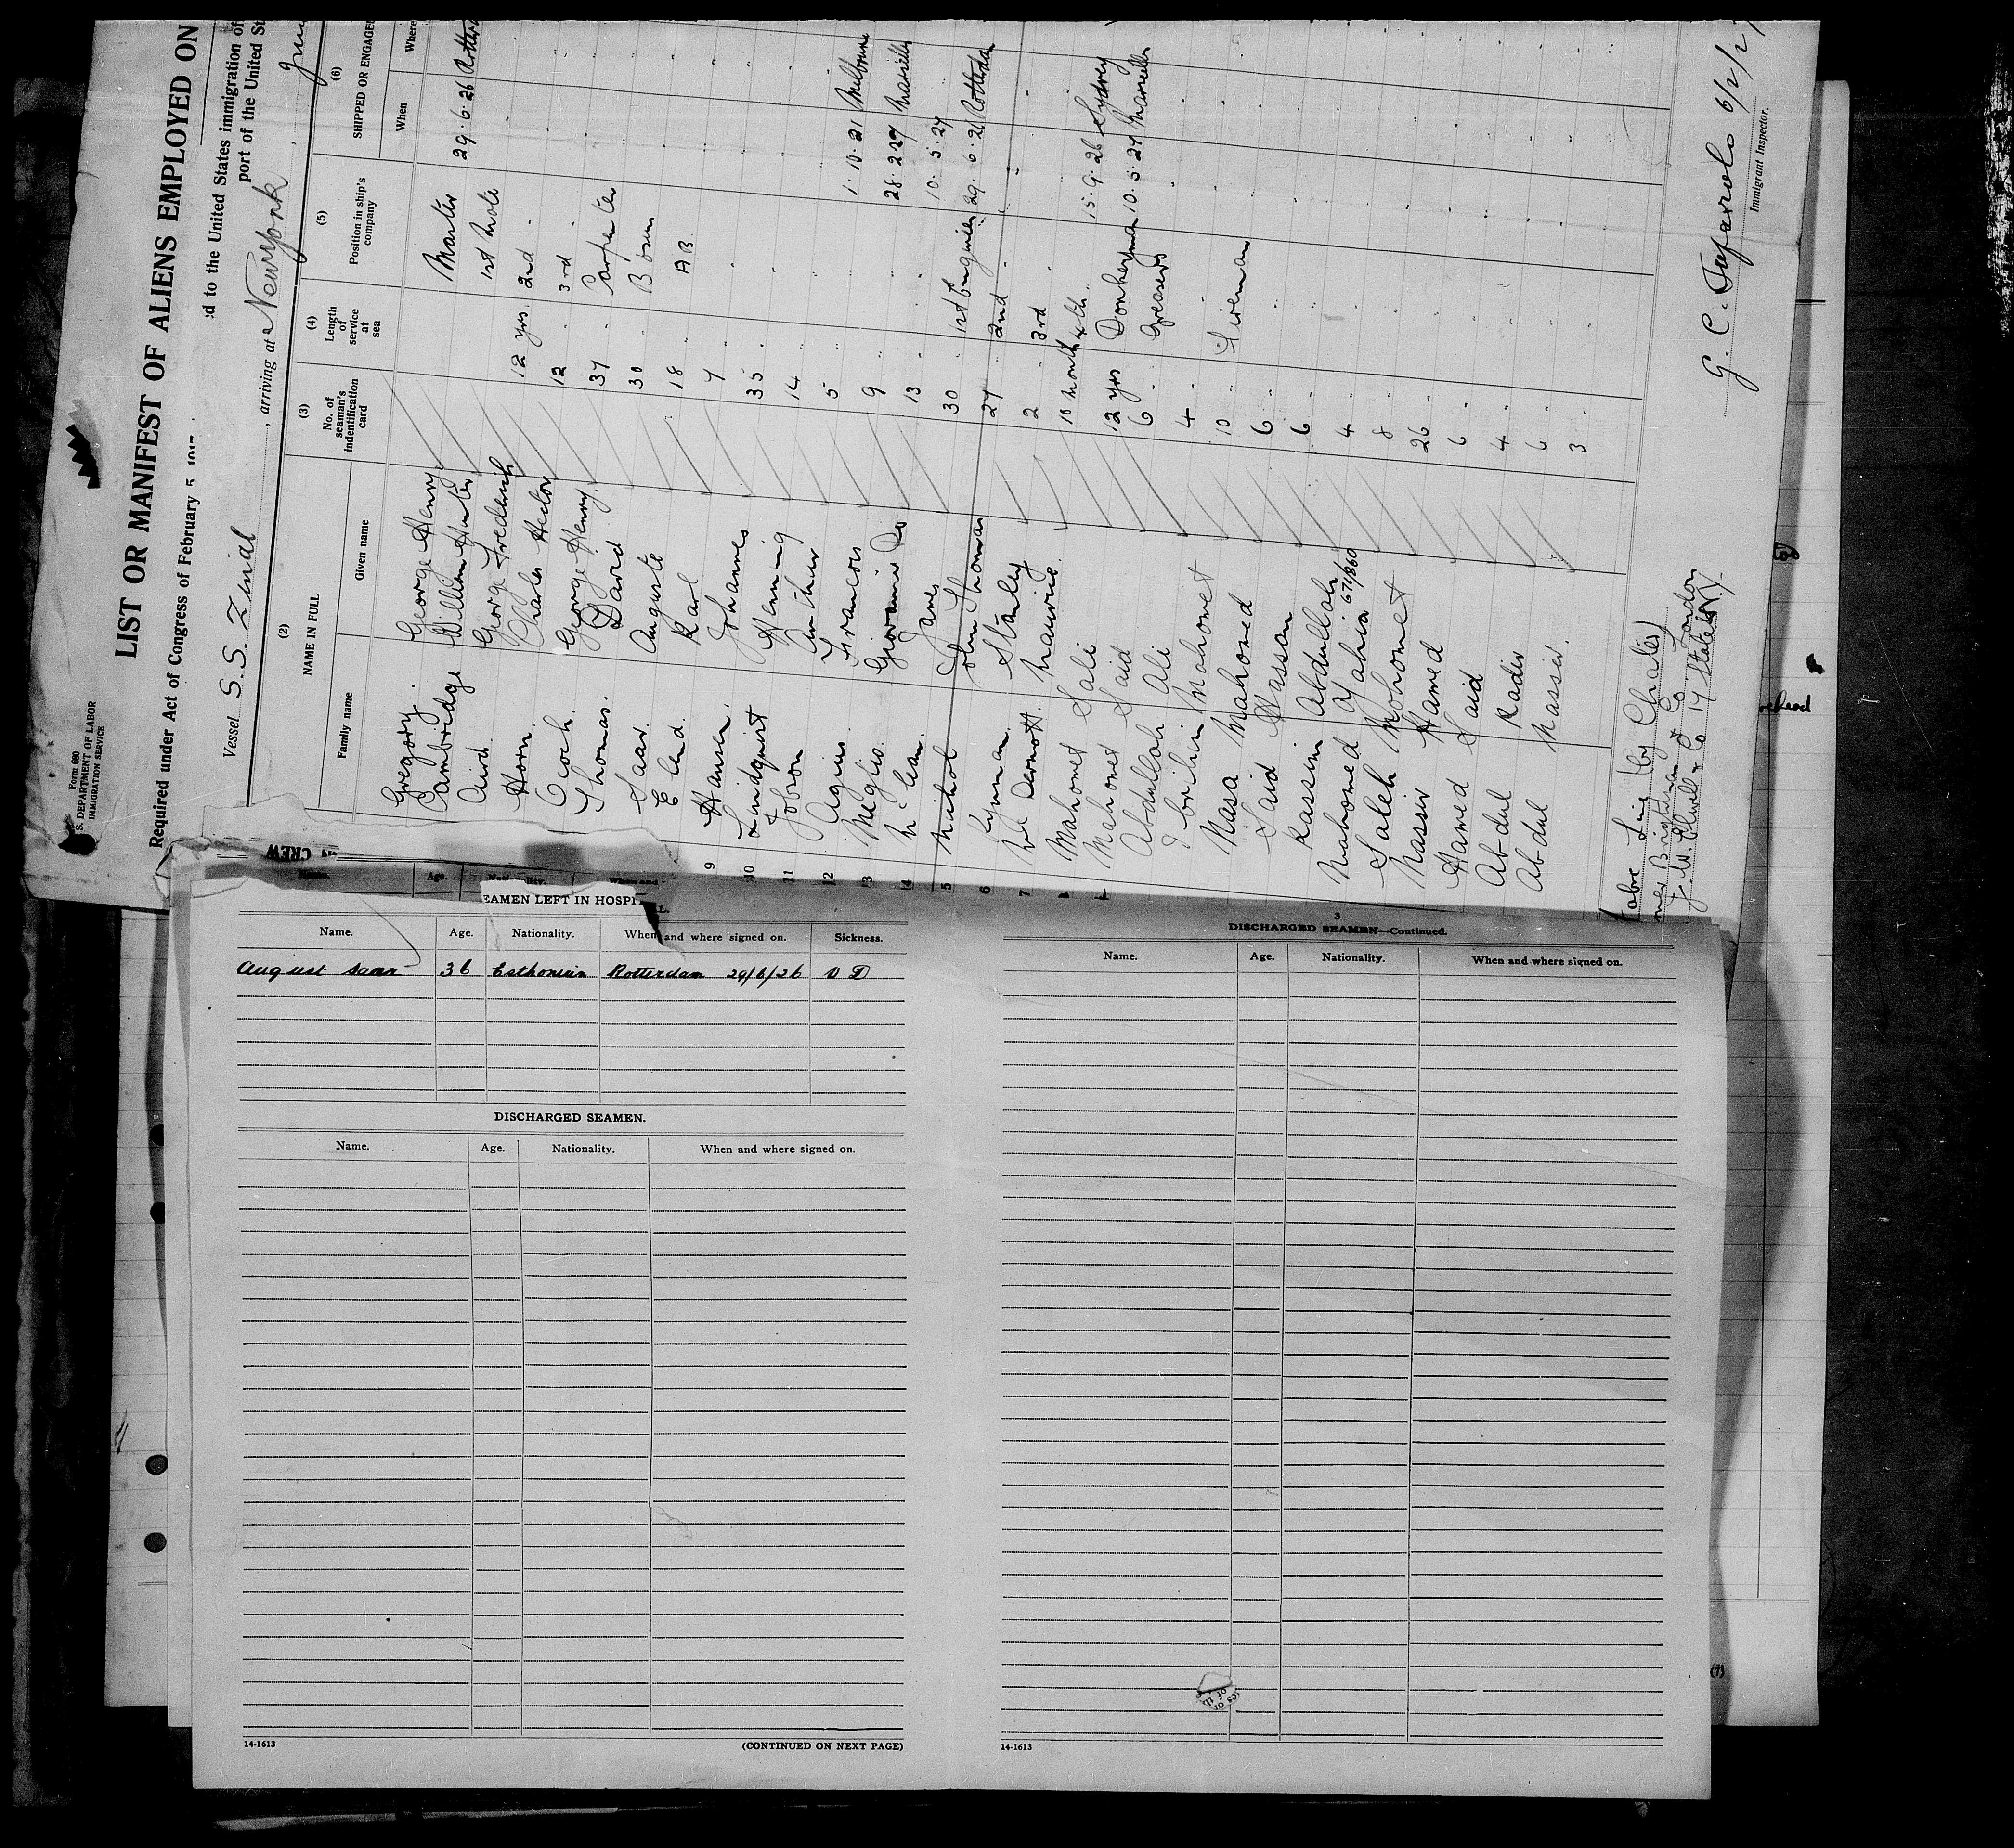 Form 680
S. DEPARTMENT OF LABOR
IMMIGRATION SERVICE
LIST OR MANIFEST OF ALIENS EMPLOYED ON
Required under Act of Congress of February 5, 191
d to the United States immigration of
port of the United St
Vessel S.S. , arriving at New York ,
(2)
NAME IN FULL
Family name
Given name
(3)
No. of seaman's indentification card
(4)
Length of service at sea
(5)
Position in ship's company
(6)
SHIPPED OR ENGAGED
When
Where
Gregory George Henry Master 29.6.26 Rotterd
Cambridge William Hunter 1st Mate
Aird George Frederick 12 yrs 2nd "
Horn Charles Hector 12 " 3rd "
George Henry 37 " Carpenter
Thomas David 30 " Bosun
Saar Auguste 18 " AB
Karl 7 "
9 Hansen Johannes 35 "
10 Lindquist Henning 14 "
11 Arthur 5 " 1.10.21 Melbourne
12 Agius Francois 9 " 28.2.27 Marseilles
13 Meglio 13 " 10.5.27 "
14 McLean James 30 " 1st Engineer 29.6.26 Rotterdam
5 John Thomas 27 " 2nd "
6 Lyman Stanley 2 " 3rd "
7 McDermott Maurice 10 months 4th " 15.9.26 Sydney
Mahomet Sali 12 yrs Donkeyman 10.5.27 Marseilles
Mahomet Said 6 " Greasers
Abdullah Ali 4 "
Ibrihim Mahomet 10 " Fireman
Nasa Mahomed 6 "
Said Hassan 6 "
Kassim Abdullah 4 "
Mahomed Yahia 671/860 8 "
Saleh Mohomet 26 "
Nassir Hamed 6 "
Hamed Said 4 "
Abdul Kadir 6 "
Abdul Nassir 3 "
(by Charter)
London
G. C. 6/2/27
Immigrant Inspector.
CREW
Name.
Age.
Nationality.
When and
EAMEN LEFT IN HOSPI
L.
Name. Age. Nationality. When and where signed on. Sickness.
August Saar 36 Esthonian Rotterdam 29/6/26 V D
DISCHARGED SEAMEN.
Name. Age. Nationality. When and where signed on.
14-1613
(CONTINUED ON NEXT PAGE)
3
DISCHARGED SEAMEN—Continued.
Name. Age. Nationality. When and where signed on.
14-1613
(7)